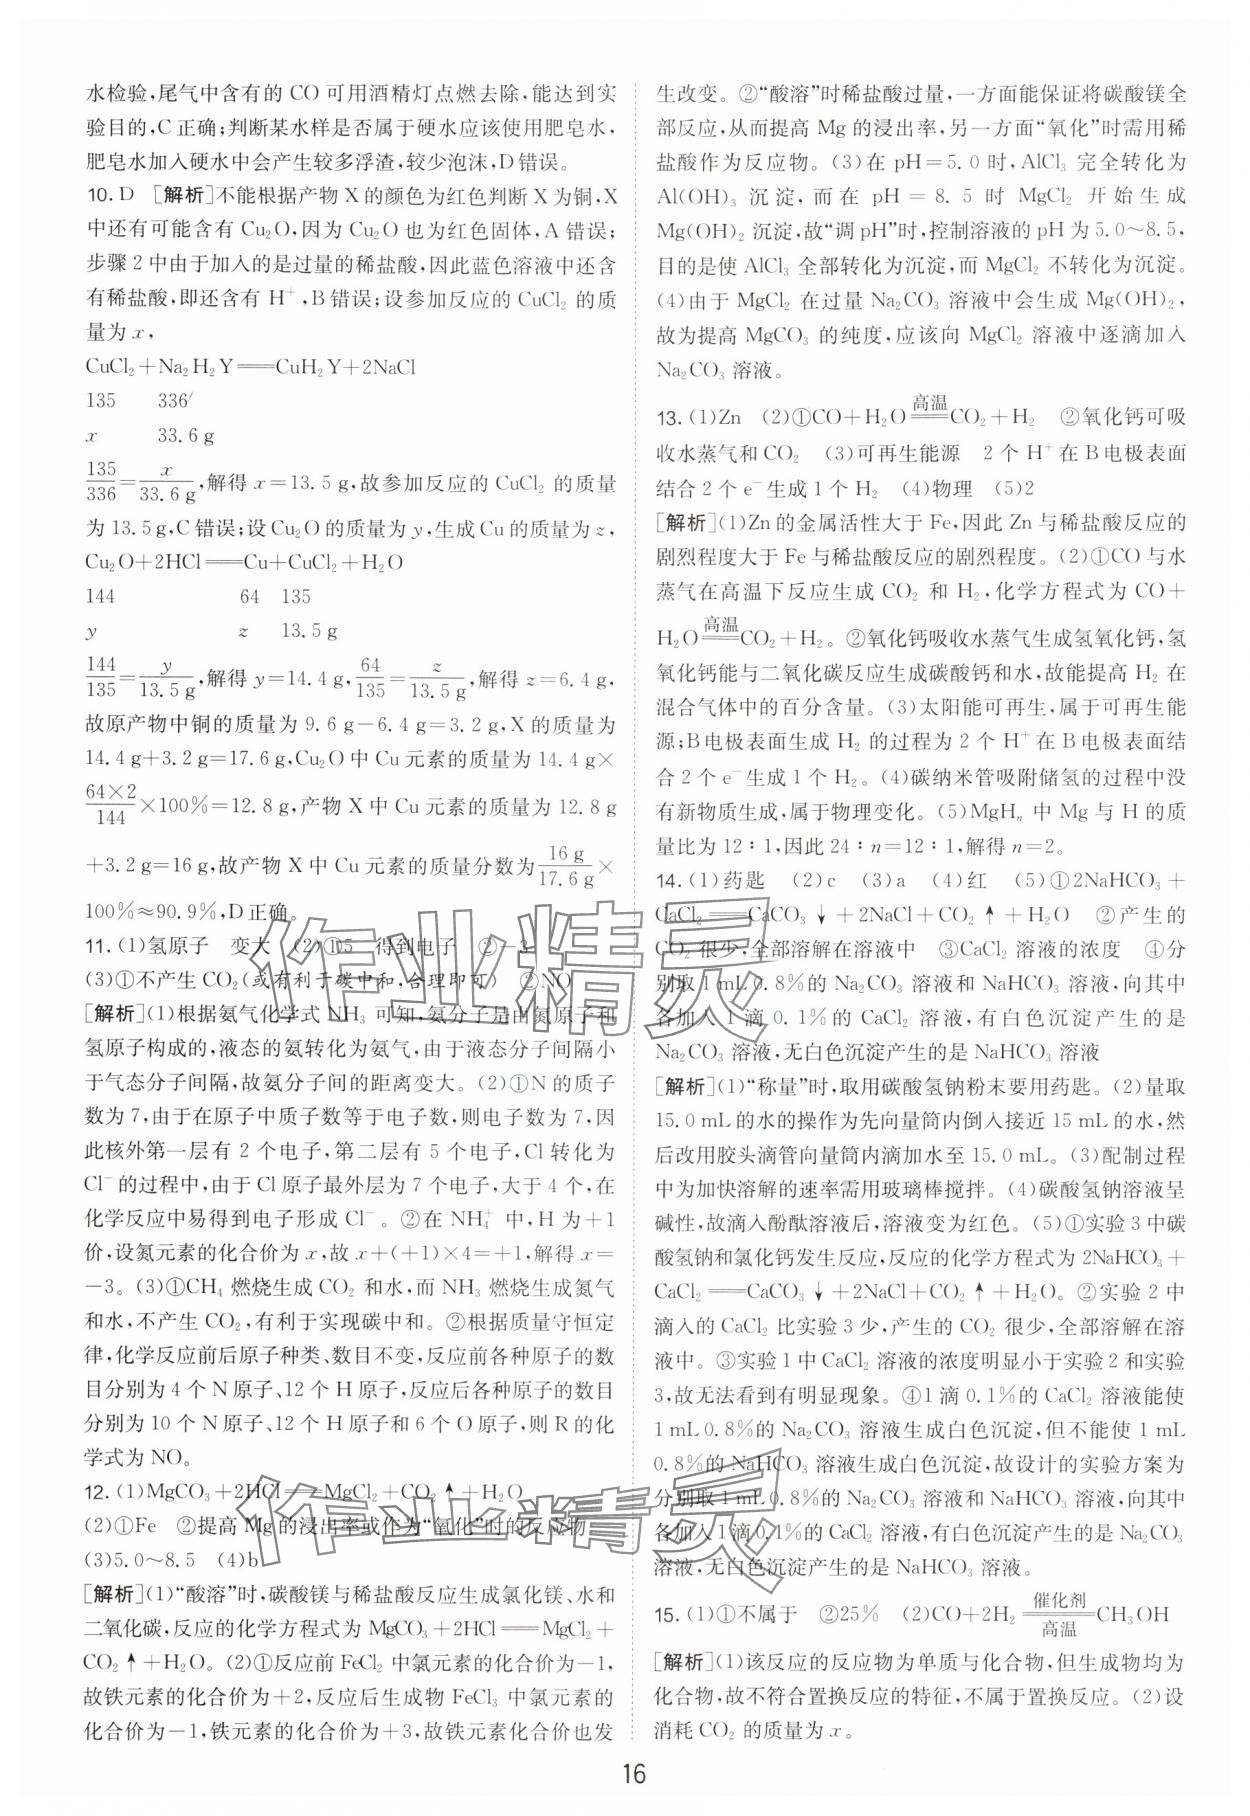 水检验,尾气中含有的 CO 可用酒精灯点燃去除,能达到实
验目的,C 正确;判断某水样是否属于硬水应该使用肥皂水,
肥皂水加入硬水中会产生较多浮渣,较少泡沫,D 错误。
10. D [解析]不能根据产物 X 的颜色为红色判断 X 为铜,X
中还有可能含有 Cu₂O,因为 Cu₂O 也为红色固体,A 错误;
步骤 2 中由于加入的是过量的稀盐酸,因此蓝色溶液中还含
有稀盐酸,即还含有 H⁺,B 错误;设参加反应的 CuCl₂ 的质
量为 x,
CuCl₂+Na₂H₂Y══CuH₂Y+2NaCl
135 336
x 33.6 g
135/336=x/33.6 g,解得 x=13.5 g,故参加反应的 CuCl₂ 的质量
为 13.5 g,C 错误;设 Cu₂O 的质量为 y,生成 Cu 的质量为 z,
Cu₂O+2HCl══Cu+CuCl₂+H₂O
144 64 135
y z 13.5 g
144/135=y/13.5 g,解得 y=14.4 g,64/135=z/13.5 g,解得 z=6.4 g,
故原产物中铜的质量为 9.6 g-6.4 g=3.2 g,X 的质量为
14.4 g+3.2 g=17.6 g,Cu₂O 中 Cu 元素的质量为 14.4 g×
64×2/144×100%=12.8 g,产物 X 中 Cu 元素的质量为 12.8 g
+3.2 g=16 g,故产物 X 中 Cu 元素的质量分数为16 g/17.6 g×
100%≈90.9%,D 正确。
11. (1)氢原子 变大 (2)①5 得到电子 ②-3
(3)①不产生 CO₂(或有利于碳中和,合理即可) ②NO
[解析](1)根据氨气化学式 NH₃ 可知,氨分子是由氮原子和
氢原子构成的,液态的氨转化为氨气,由于液态分子间隔小
于气态分子间隔,故氨分子间的距离变大。(2)①N 的质子
数为 7,由于在原子中质子数等于电子数,则电子数为 7,因
此核外第一层有 2 个电子,第二层有 5 个电子,Cl 转化为
Cl⁻ 的过程中,由于 Cl 原子最外层为 7 个电子,大于 4 个,在
化学反应中易得到电子形成 Cl⁻。②在 NH₄⁺ 中,H 为+1
价,设氮元素的化合价为 x,故 x+(+1)×4=+1,解得 x=
-3。(3)①CH₄ 燃烧生成 CO₂ 和水,而 NH₃ 燃烧生成氮气
和水,不产生 CO₂,有利于实现碳中和。②根据质量守恒定
律,化学反应前后原子种类、数目不变,反应前各种原子的数
目分别为 4 个 N 原子、12 个 H 原子,反应后各种原子的数目
分别为 10 个 N 原子、12 个 H 原子和 6 个 O 原子,则 R 的化
学式为 NO。
12. (1)MgCO₃+2HCl══MgCl₂+CO₂↑+H₂O
(2)①Fe ②提高 Mg 的浸出率或作为“氧化”时的反应物
(3)5.0~8.5 (4)b
[解析](1)“酸溶”时,碳酸镁与稀盐酸反应生成氯化镁、水和
二氧化碳,反应的化学方程式为 MgCO₃+2HCl══MgCl₂+
CO₂↑+H₂O。(2)①反应前 FeCl₂ 中氯元素的化合价为-1,
故铁元素的化合价为+2,反应后生成物 FeCl₃ 中氯元素的
化合价为-1,铁元素的化合价为+3,故铁元素化合价也发
生改变。②“酸溶”时稀盐酸过量,一方面能保证将碳酸镁全
部反应,从而提高 Mg 的浸出率,另一方面“氧化”时需用稀
盐酸作为反应物。(3)在 pH=5.0 时,AlCl₃ 完全转化为
Al(OH)₃ 沉淀,而在 pH=8.5 时 MgCl₂ 开始生成
Mg(OH)₂ 沉淀,故“调 pH”时,控制溶液的 pH 为 5.0~8.5,
目的是使 AlCl₃ 全部转化为沉淀,而 MgCl₂ 不转化为沉淀。
(4)由于 MgCl₂ 在过量 Na₂CO₃ 溶液中会生成 Mg(OH)₂,
故为提高 MgCO₃ 的纯度,应该向 MgCl₂ 溶液中逐滴加入
Na₂CO₃ 溶液。
13. (1)Zn (2)①CO+H₂O═高温═CO₂+H₂ ②氧化钙可吸
收水蒸气和 CO₂ (3)可再生能源 2 个 H⁺ 在 B 电极表面
结合 2 个 e⁻ 生成 1 个 H₂ (4)物理 (5)2
[解析](1)Zn 的金属活性大于 Fe,因此 Zn 与稀盐酸反应的
剧烈程度大于 Fe 与稀盐酸反应的剧烈程度。(2)①CO 与水
蒸气在高温下反应生成 CO₂ 和 H₂,化学方程式为 CO+
H₂O═高温═CO₂+H₂。②氧化钙吸收水蒸气生成氢氧化钙,氢
氧化钙能与二氧化碳反应生成碳酸钙和水,故能提高 H₂ 在
混合气体中的百分含量。(3)太阳能可再生,属于可再生能
源;B 电极表面生成 H₂ 的过程为 2 个 H⁺ 在 B 电极表面结
合 2 个 e⁻ 生成 1 个 H₂。(4)碳纳米管吸附储氢的过程中没
有新物质生成,属于物理变化。(5)MgHₙ 中 Mg 与 H 的质
量比为 12∶1,因此 24∶n=12∶1,解得 n=2。
14. (1)药匙 (2)c (3)a (4)红 (5)①2NaHCO₃+
CaCl₂══CaCO₃↓+2NaCl+CO₂↑+H₂O ②产生的
CO₂ 很少,全部溶解在溶液中 ③CaCl₂ 溶液的浓度 ④分
别取 1 mL 0.8%的 Na₂CO₃ 溶液和 NaHCO₃ 溶液,向其中
各加入 1 滴 0.1%的 CaCl₂ 溶液,有白色沉淀产生的是
Na₂CO₃ 溶液,无白色沉淀产生的是 NaHCO₃ 溶液
[解析](1)“称量”时,取用碳酸氢钠粉末要用药匙。(2)量取
15.0 mL 的水的操作为先向量筒内倒入接近 15 mL 的水,然
后改用胶头滴管向量筒内滴加水至 15.0 mL。(3)配制过程
中为加快溶解的速率需用玻璃棒搅拌。(4)碳酸氢钠溶液呈
碱性,故滴入酚酞溶液后,溶液变为红色。(5)①实验 3 中碳
酸氢钠和氯化钙发生反应,反应的化学方程式为 2NaHCO₃+
CaCl₂══CaCO₃↓+2NaCl+CO₂↑+H₂O。②实验 2 中
滴入的 CaCl₂ 比实验 3 少,产生的 CO₂ 很少,全部溶解在溶
液中。③实验 1 中 CaCl₂ 溶液的浓度明显小于实验 2 和实验
3,故无法看到有明显现象。④1 滴 0.1%的 CaCl₂ 溶液能使
1 mL 0.8%的 Na₂CO₃ 溶液生成白色沉淀,但不能使 1 mL
0.8%的 NaHCO₃ 溶液生成白色沉淀,故设计的实验方案为
分别取 1 mL 0.8%的 Na₂CO₃ 溶液和 NaHCO₃ 溶液,向其中
各加入 1 滴 0.1%的 CaCl₂ 溶液,有白色沉淀产生的是 Na₂CO₃
溶液,无白色沉淀产生的是 NaHCO₃ 溶液。
15. (1)①不属于 ②25% (2)CO+2H₂═催化剂/高温═CH₃OH
[解析](1)该反应的反应物为单质与化合物,但生成物均为
化合物,故不符合置换反应的特征,不属于置换反应。(2)设
消耗 CO₂ 的质量为 x。
16
作业精灵
作业精灵